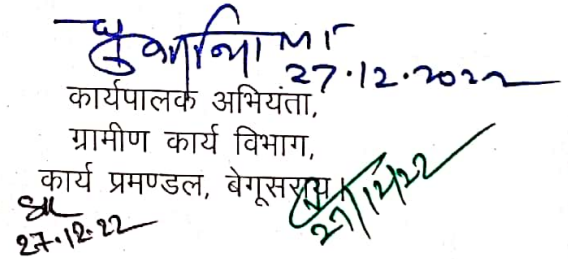 27.12.2022
कार्यपालक अभियंता,
ग्रामीण कार्य विभाग,
कार्य प्रमण्डल, बेगूसराय।
27/12/22
27.12.22